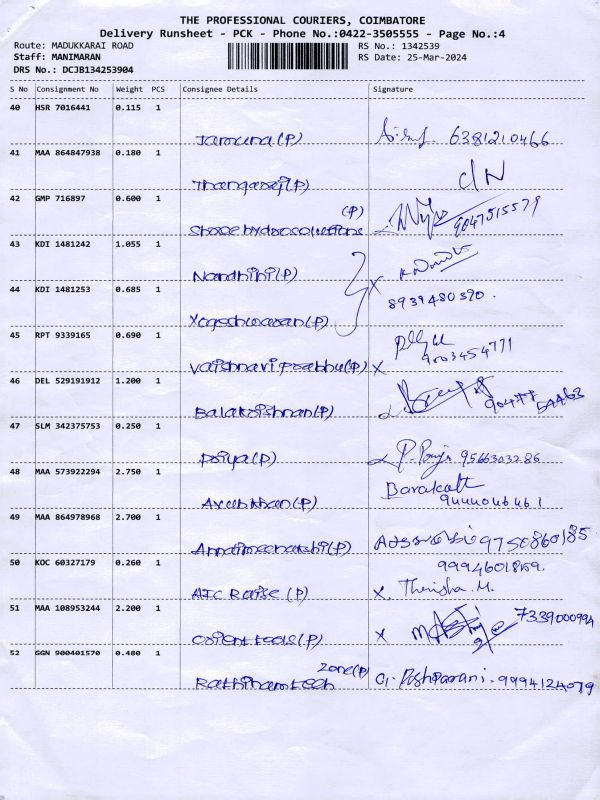 THE PROFESSIONAL COURIERS, COIMBATORE
Delivery Runsheet - PCK - Phone No.:0422-3505555 - Page No.:4
Route: MADUKKARAI ROAD RS No.: 1342539
Staff: MANIMARAN RS Date: 25-Mar-2024
DRS No.: DCJB134253904
S No Consignment No Weight PCS Consignee Details Signature
40 HSR 7016441 0.115 1
Jamuna (P) 6381210466
41 MAA 864847938 0.180 1
Thangaraj (P) C/N
42 GMP 716897 0.600 1
(P)
9047515579
43 KDI 1481242 1.055 1
Nandhini (P) X
44 KDI 1481253 0.685 1
8939480390.
Yogeshwaran (P)
45 RPT 9339165 0.690 1
Vaishnavi prabhu (P) X 9003454771
46 DEL 529191912 1.200 1
Balakrishnan (P)
47 SLM 342375753 0.250 1
Priya (P) 9566303286
48 MAA 573922294 2.750 1
Barakath
Ayub khan (P) 9444046461
49 MAA 864978968 2.700 1
Annaimeenakshi (P) 9750860185
50 KOC 60327179 0.260 1
9994601859.
AIC Raise (P) X. Therisha. M.
51 MAA 108953244 2.200 1
7339000994
Orient tools (P) X
52 GGN 900401570 0.480 1
zone (P)
Rathinam tech G. Pushparani. 9994124079